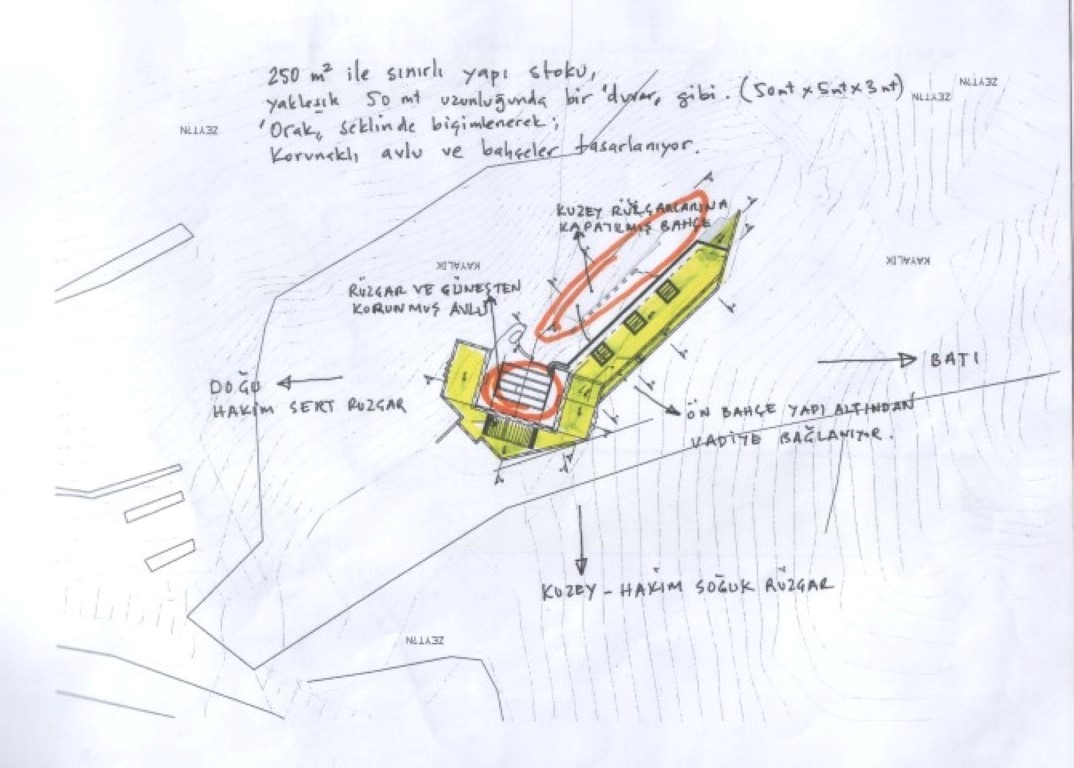 250 m² ile sınırlı yapı stoku,
yaklaşık 50 mt uzunluğunda bir 'duvar, gibi. (50mt x 5mt x 3mt)
'Orak, şeklinde biçimlenerek;
Korunaklı avlu ve bahçeler tasarlanıyor.
ZEYTİN
ZEYTİN
ZEYTİN
KUZEY RÜZGARLARINA
KAPATILMIŞ BAHÇE
KAYALIK
KAYALIK
RÜZGAR VE GÜNEŞTEN
KORUNMUŞ AVLU
DOĞU
HAKİM SERT RUZGAR
BATI
ÖN BAHÇE YAPI ALTINDAN
VADİYE BAĞLANIYOR.
KUZEY - HAKİM SOĞUK RÜZGAR
ZEYTİN